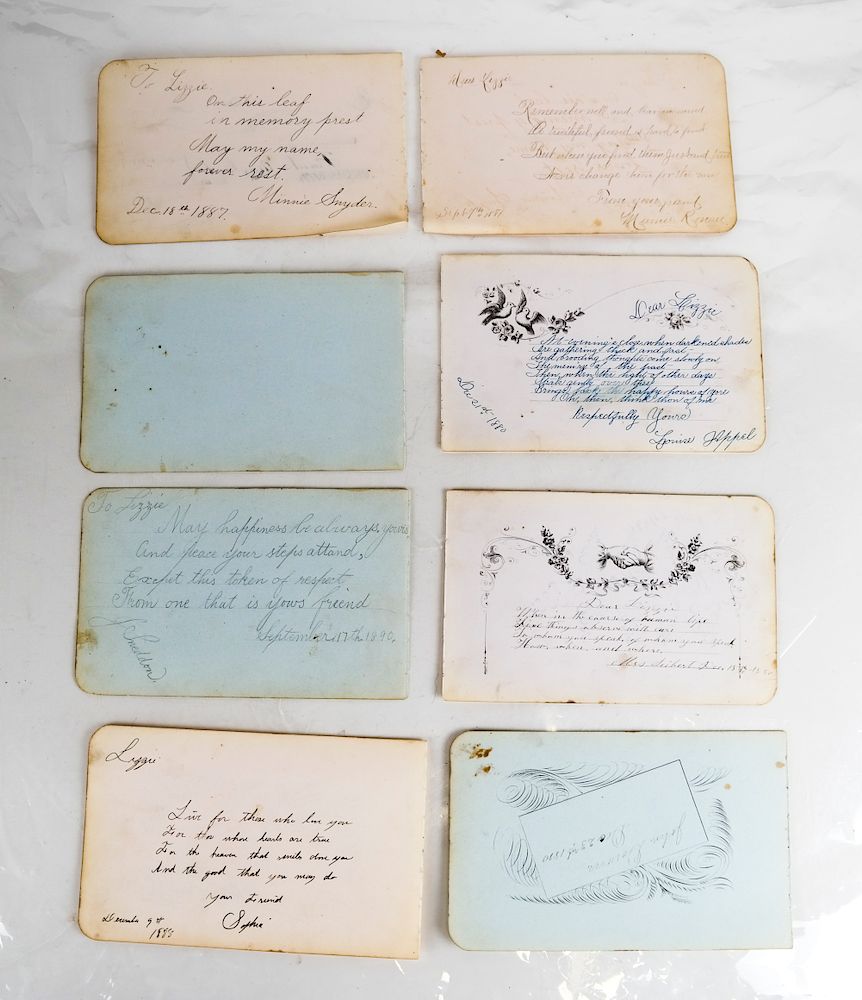 To Lizzie
On this leaf
in memory prest
May my name,
forever rest.
Minnie Snyder.
Dec. 18th 1887.
Miss Lizzie
Remember well and bear in mind
A faithful friend is hard to find
But when you find
change him for
From your
Mamie
Sept 7th
Dear Lizzie
At evening's close when darkened shades
Are gathering thick and fast
And brooding thoughts come slowly on
The memory of the past
Then, when the light of other days
Steals gently over thee
Brings back the happy hours of yore
Oh, then, think thou of me
Respectfully Yours
Louise Appel
Dec 21st 1880
To Lizzie
May happiness be always yours,
And peace your steps attand,
Except this token of respect
From one that is yours friend
September 17th 1890.
J Sneddon.
Dear Lizzie
When in the course of human life
five things observe with care
To whom you speak, of whom you speak
How, when, and where.
Mrs. Seibert Dec.
Lizzie
Live for those who love you
For those whose hearts are true
For the heaven that smiles above you
And the good that you may do
Your Friend
Sophie
December 9th
1883
John
Dec 23rd 1880